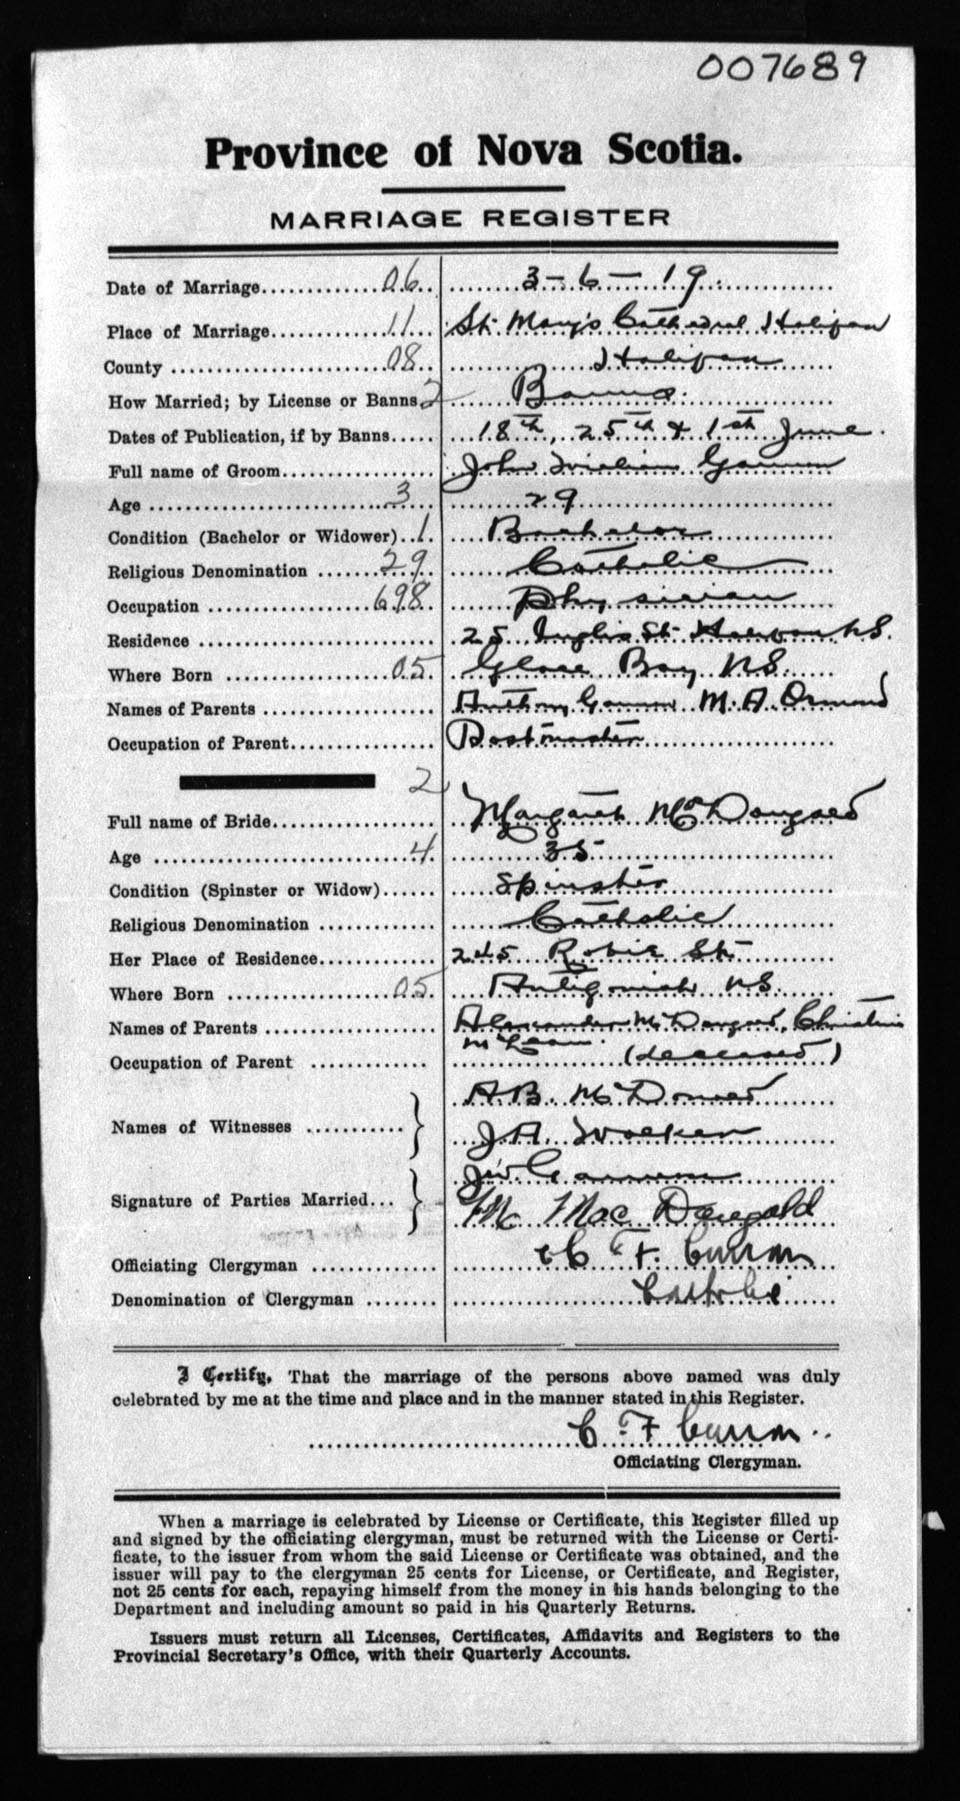 007689
Province of Nova Scotia.
MARRIAGE REGISTER
Date of Marriage 06 3-6-19
Place of Marriage 11 St. Mary's Cathedral Halifax
County 08 Halifax
How Married; by License or Banns 2 Banns
Dates of Publication, if by Banns 18th, 25th & 1st June
Full name of Groom John William Gannon
Age 3 29
Condition (Bachelor or Widower) 1 Bachelor
Religious Denomination 29 Catholic
Occupation 698 Physician
Residence 25 Inglis St. Halifax N.S.
Where Born 05 Glace Bay N.S.
Names of Parents Anthony Gannon M. A. Ormond
Occupation of Parent Postmaster
2
Full name of Bride Margaret McDougald
Age 4 35
Condition (Spinster or Widow) Spinster
Religious Denomination Catholic
Her Place of Residence 245 Robie St.
Where Born 05 Antigonish N.S.
Names of Parents Alexander McDougald, Christine
McLean
Occupation of Parent (deceased)
A.B. McDonald
Names of Witnesses }
J.A. Walker
J.W. Gannon
Signature of Parties Married }
M. MacDougald
Officiating Clergyman C F. Curran
Denomination of Clergyman Catholic
I Certify, That the marriage of the persons above named was duly
celebrated by me at the time and place and in the manner stated in this Register.
C F Curran
Officiating Clergyman.
When a marriage is celebrated by License or Certificate, this Register filled up
and signed by the officiating clergyman, must be returned with the License or Certi-
ficate, to the issuer from whom the said License or Certificate was obtained, and the
issuer will pay to the clergyman 25 cents for License, or Certificate, and Register,
not 25 cents for each, repaying himself from the money in his hands belonging to the
Department and including amount so paid in his Quarterly Returns.
Issuers must return all Licenses, Certificates, Affidavits and Registers to the
Provincial Secretary's Office, with their Quarterly Accounts.